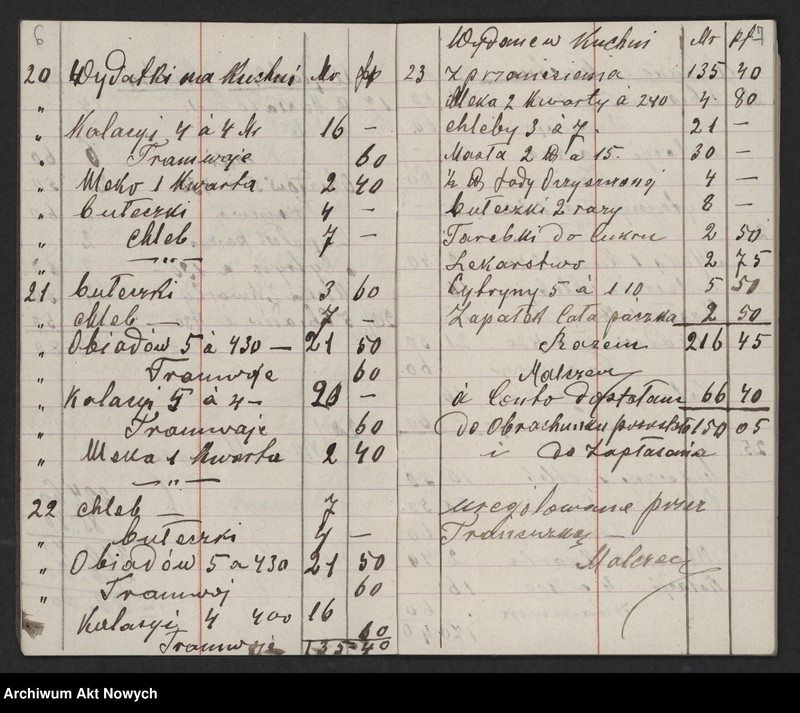 6
20 Wydatki na Kuchni Mr fp
"
" Kolacyj 4 à 4 Mr 16 —
Tramwaje 60
" Meko 1 Kwarta 2 40
" bułeczki 4 —
" Chleb 7 —
" — " —
21 bułeczki 3 60
" chleb — 7 —
" Obiadów 5 à 430 — 21 50
" Tramwoje 60
" Kolacyj 5 à 4 — 20 —
" Tramwaje 60
" Meka 1 Kwarta 2 40
— " —
22 Chleb — 7
" bułeczki 4 —
" Obiadów 5 a 430 21 50
" Tramwoj 60
Kolacyj 4 400 16
Tramwaje 60
135 40
7
Wydane w Kuchni Mr pf
23 Z przeniesienia 135 40
Meka 2 Kwarty à 240 4 80
chleby 3 à 7. 21 —
Masła 2 ℔ à 15. 30 —
½ ℔ 4 —
bułeczki 2 razy 8 —
Torebki do Cukru 2 50
Lekarstwo 2 75
Cytryny 5 à 110 5 50
Zapałek Cała paczka 2 50
Razem 216 45
Malczew
à Conto dopłatam 66 40
do Obrachunku 150 05
i do Zapłacenia
uregolowane przez
Francuzką —
Malczew
Archiwum Akt Nowych